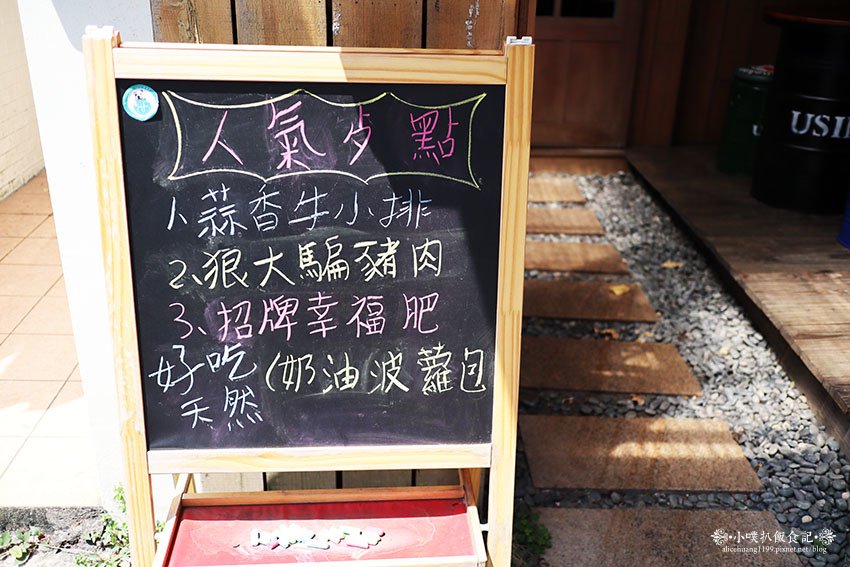 人氣歺點
1、蒜香牛小排
2、狠大騙豬肉
3、招牌幸福肥
好吃
天然
(奶油波蘿包
USII
小噗趴飯食記
alicehuang1199.pixnet.net/blog